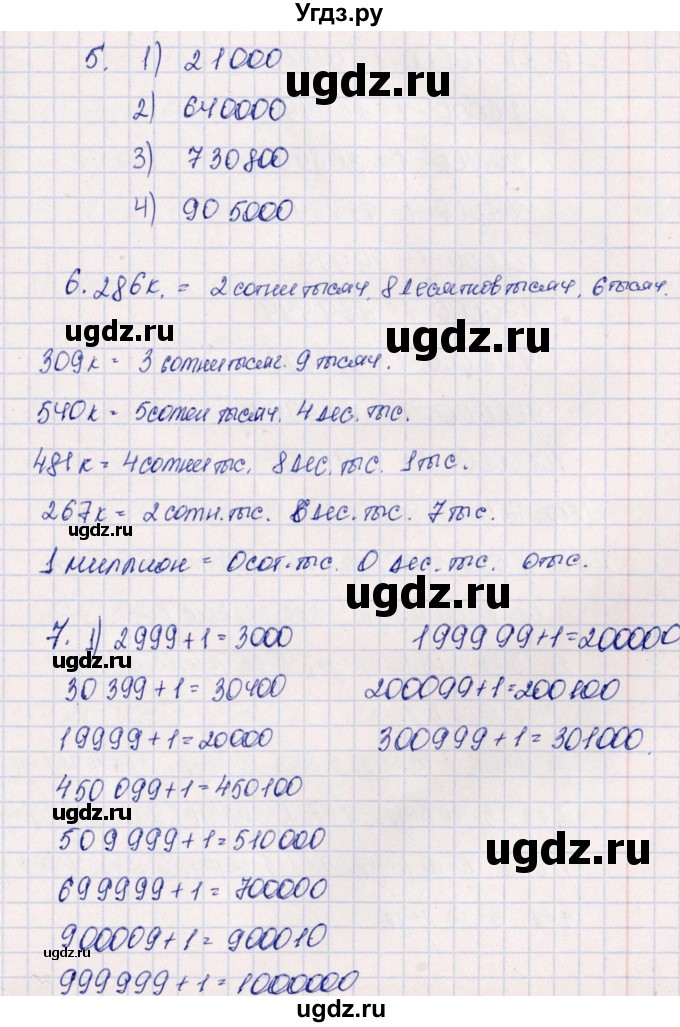 Угдз.ру
5. 1) 21000
ugdz.ru
2) 640000
3) 730800
4) 905000
6. 286к. = 2 сотни тысяч, 8 десятков тысяч, 6 тысяч.
ugdz.ru
ugdz.ru
309к = 3 сотни тысяч. 9 тысяч.
540к = 5 сотен тысяч. 4 дес. тыс.
481к = 4 сотни тыс. 8 дес. тыс. 1 тыс.
267к = 2 сотн. тыс. 6 дес. тыс. 7 тыс.
ugdz.ru
1 миллион = 0 сот. тыс. 0 дес. тыс. 0 тыс.
ugdz.ru
7. 1) 2999+1=3000 199999+1=200000
ugdz.ru
30399+1=30400 200099+1=200100
19999+1=20000 300999+1=301000.
450 099+1=450100
ugdz.ru
509 999+1=510000
ugdz.ru
699999+1=700000
900009+1=900010
ugdz.ru
999999+1=1000000
ugdz.ru